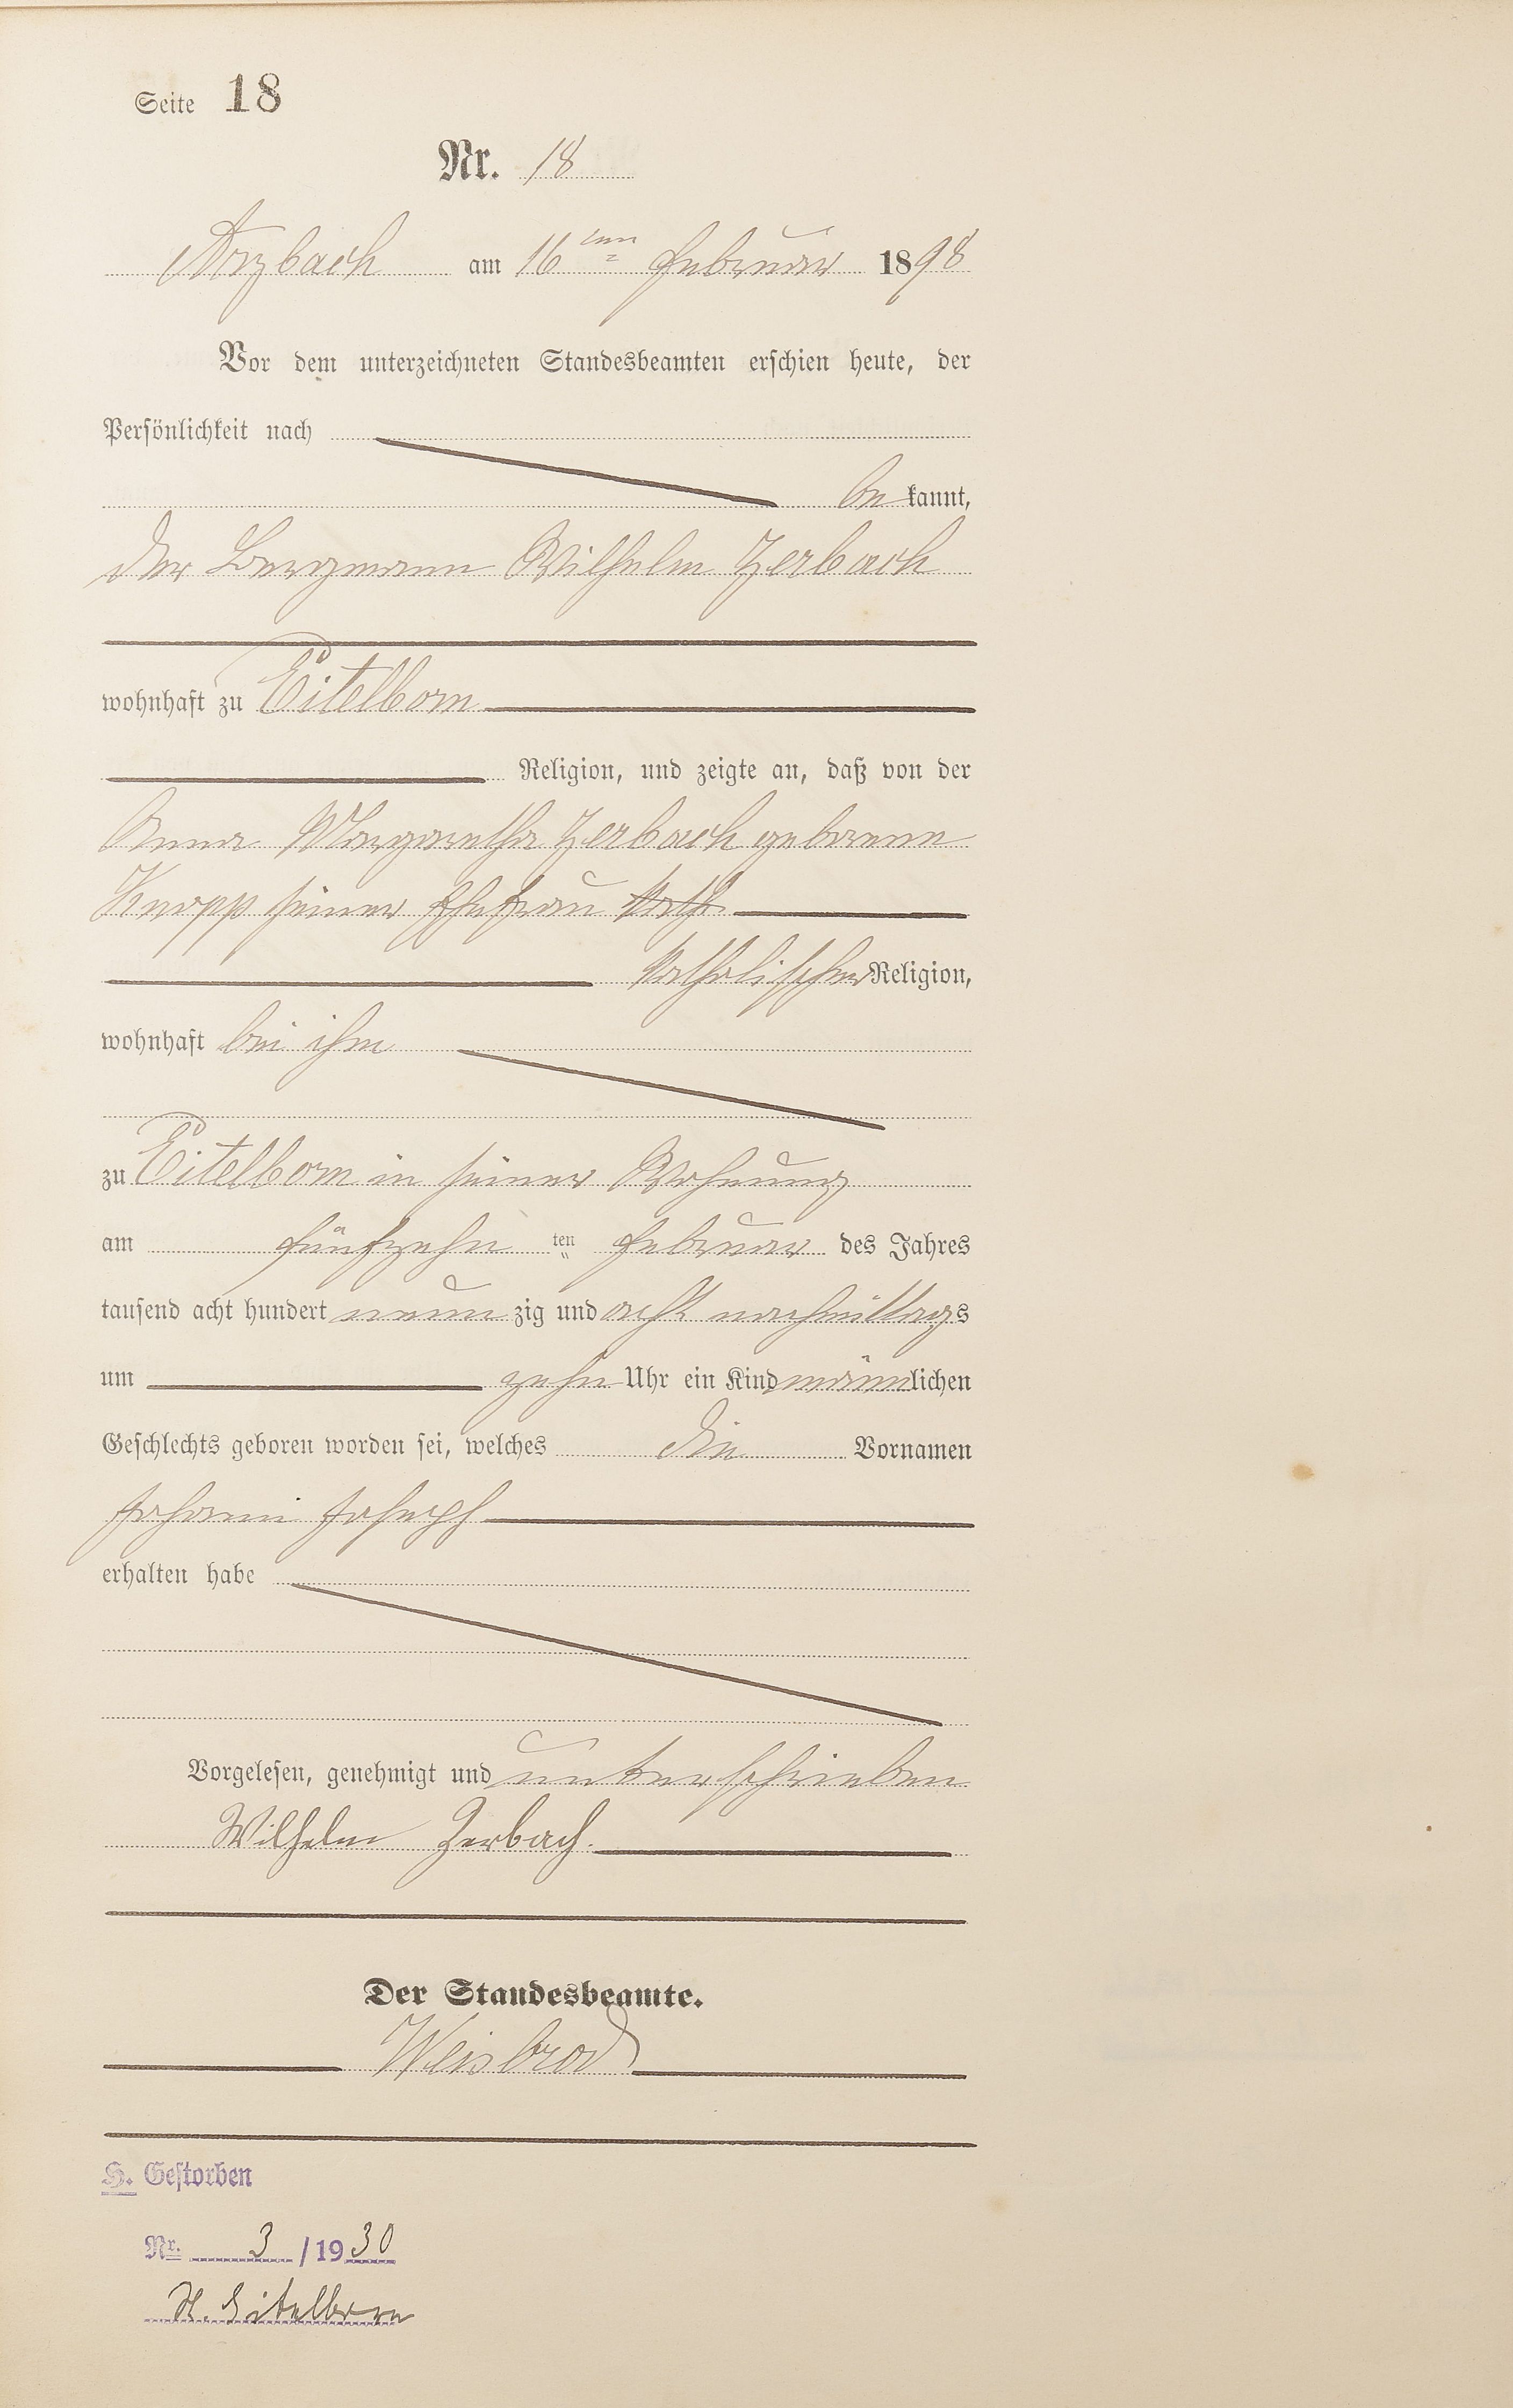 Seite 18
Nr. 18
Arzbach am 16ten Februar 1898
Vor dem unterzeichneten Standesbeamten erschien heute, der
Persönlichkeit nach
be kannt,
der Bergmann Wilhelm Zerbach
wohnhaft zu Eitelborn
Religion, und zeigte an, daß von der
Anna Margaretha Zerbach geborene
Knopp seiner Ehefrau kath.
katholischer Religion,
wohnhaft bei ihm
zu Eitelborn in seiner Wohnung
am fünfzehn ten Februar des Jahres
tausend acht hundert neun zig und acht nachmittags
um zehn Uhr ein Kind männlichen
Geschlechts geboren worden sei, welches die Vornamen
Johann Joseph
erhalten habe
Vorgelesen, genehmigt und unterschrieben
Wilhelm Zerbach.
Der Standesbeamte.
Weisbrod
H. Gestorben
Nr. 3 /1930
St. Eitelborn